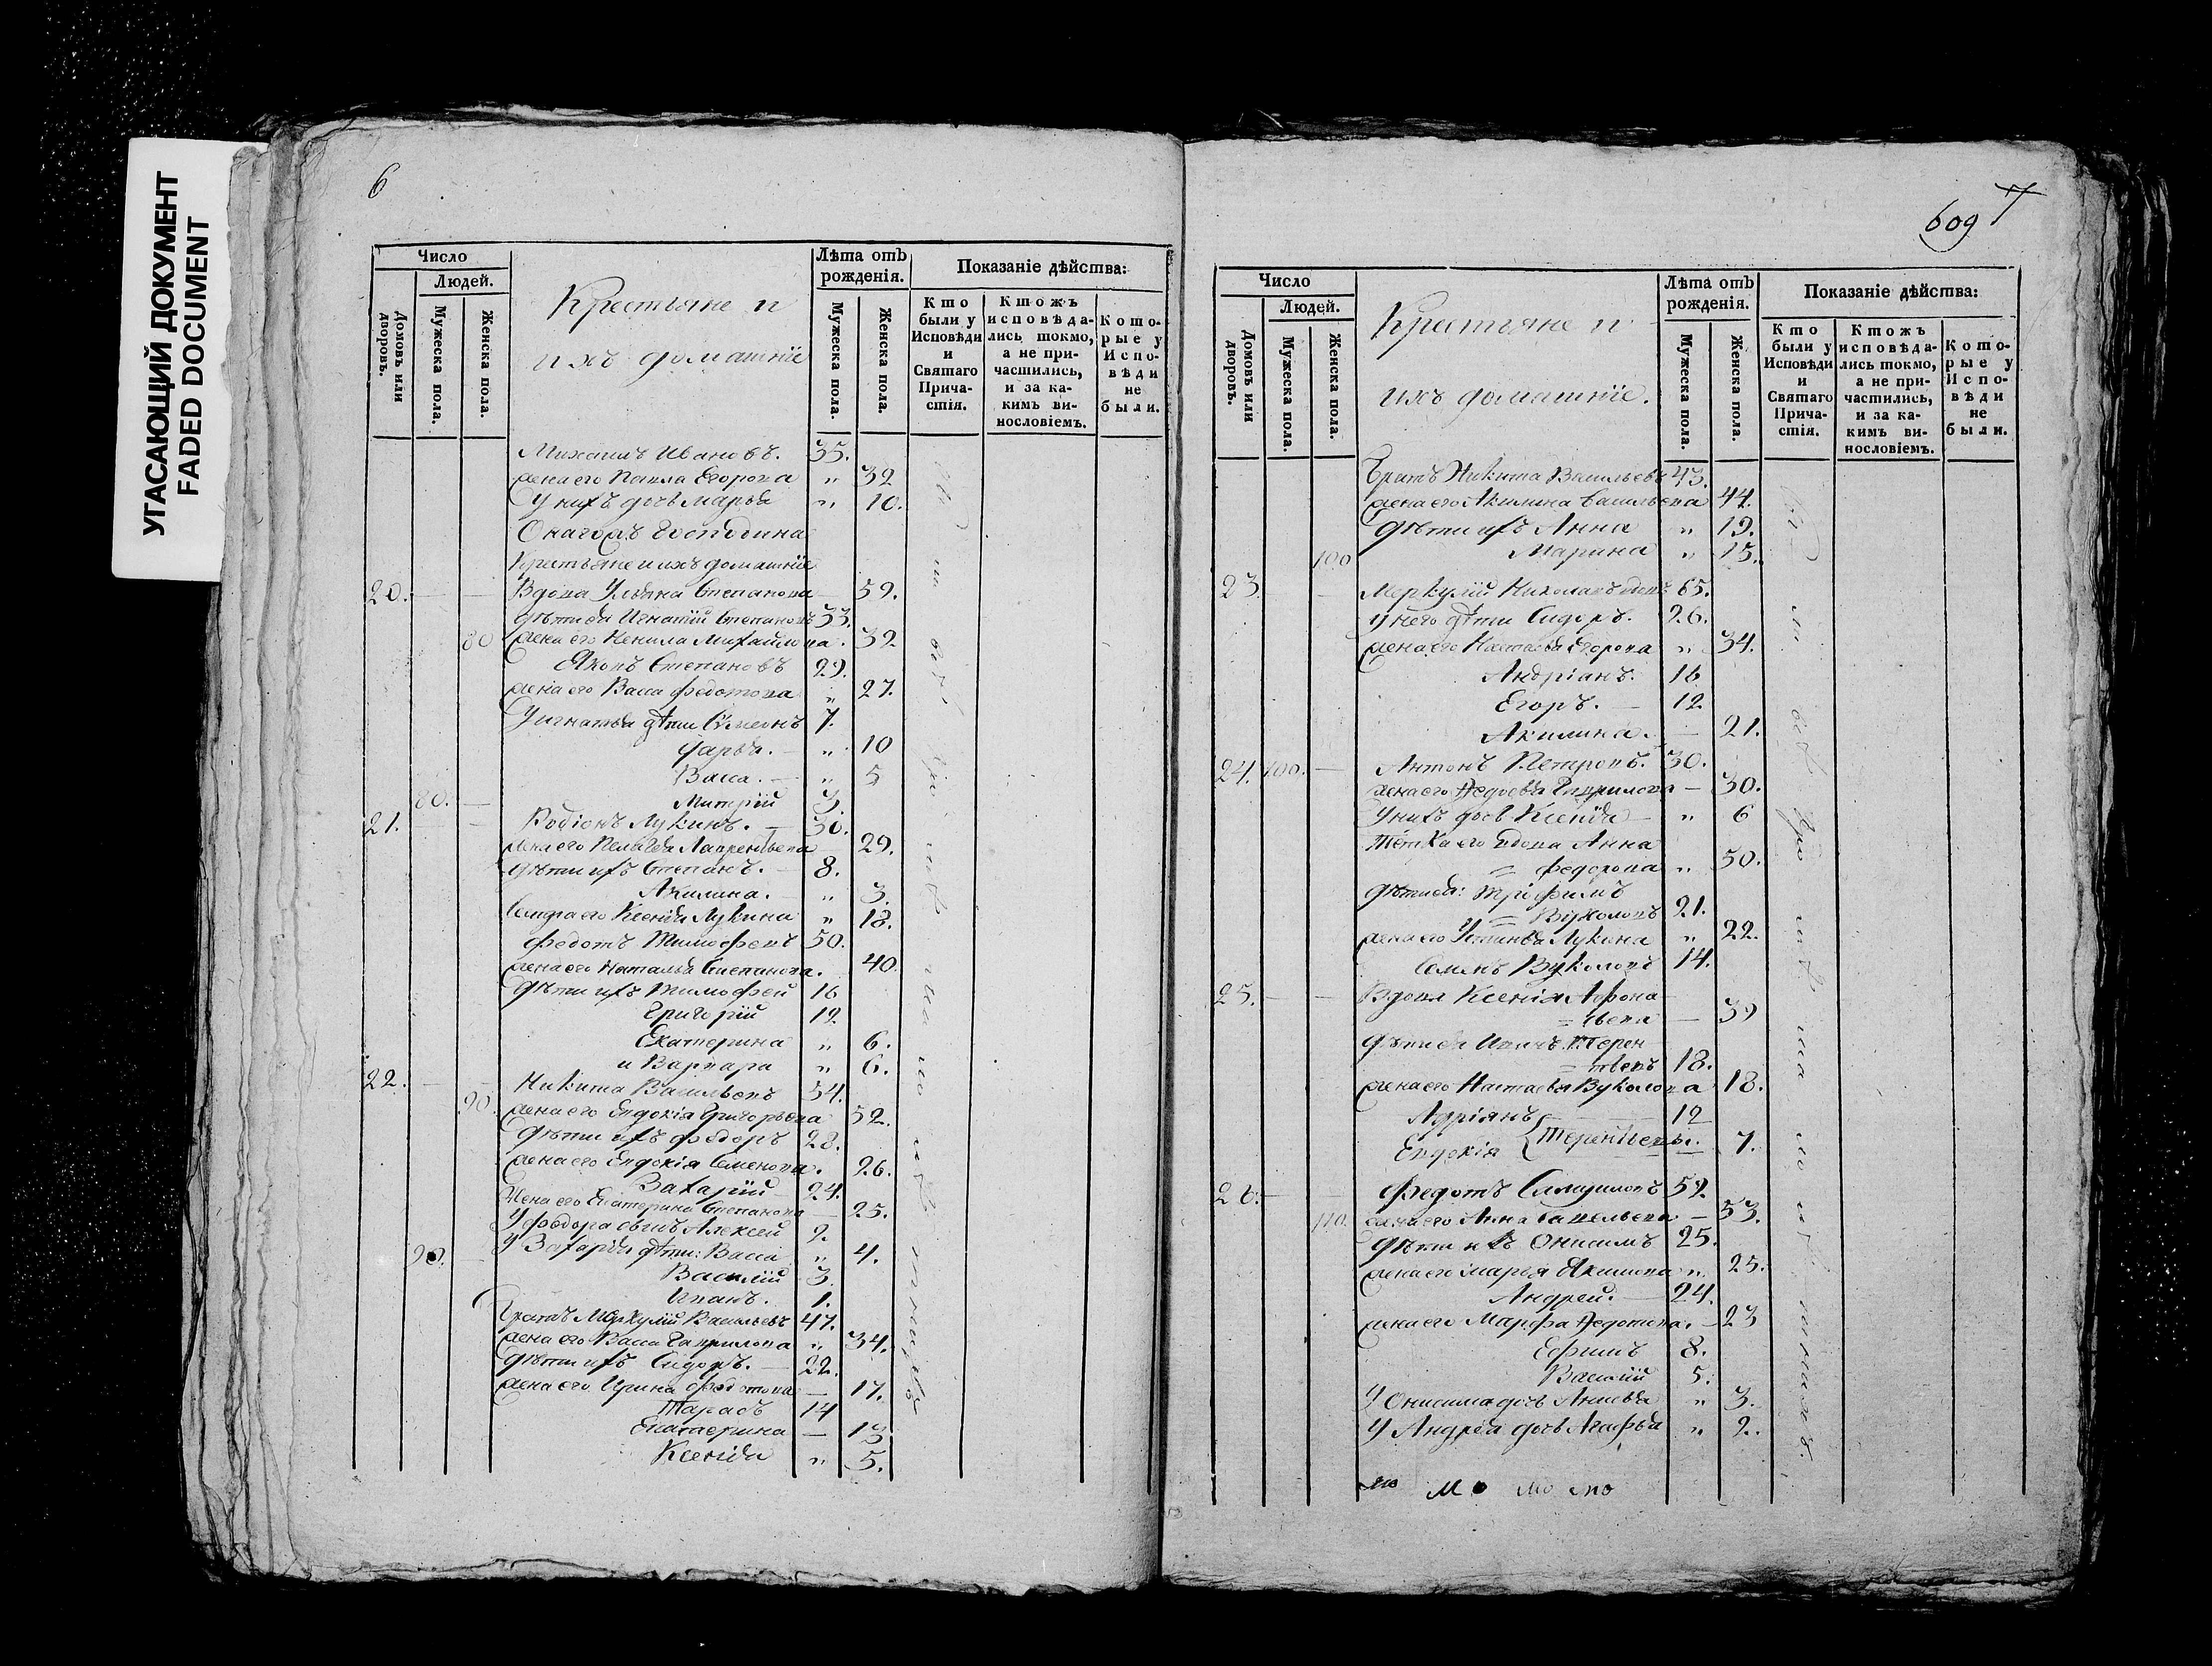 УГАСАЮЩИЙ ДОКУМЕНТ
FADED DOCUMENT
6
Число
Людей.
Домовъ или дворовъ.
Мужеска пола.
Женска пола.
Крестьяне и
ихъ домашніе
Лѣта отъ рожденія.
Мужеска пола.
Женска пола.
Показаніе дѣйства:
Кто были у Исповѣди и Святаго Причастія.
Ктожъ исповѣдались токмо, а не причастились, и за какимъ винословіемъ.
Которые у Исповѣди не были.
Михаилъ Ивановъ. 35.
жена его Павла Егорова " 32
У нихъ дочь Марья " 10.
Онагожъ Господина
Крестьяне и ихъ домашніе
20. Вдова Ульяна Степанова 59.
дѣти ея Игнатій Степановъ 33.
80 жена его Ненила Михайлова. 32
Яковъ Степановъ 29.
жена его Васа Федотова " 27.
У Игнатья дѣти Сѵмеонъ 7.
Дарья. " 10
Васа. " 5
80. Митрій 3.
21. Родіонъ Лукинъ. 30.
жена его Пелагея Лаврентьева 29.
дѣти ихъ Степанъ. 8.
Акилина. " 3.
Сестра его Ксенія Лукина " 18.
Федотъ Тимофеевъ 50.
жена его Наталья Степанова. 40.
дѣти ихъ Тимофей 16
Григорій 12
Екатерина " 6.
и Варвара " 6.
22. Никита Васильевъ 54.
90. жена его Евдокія Григорьева 52.
дѣти ихъ Федоръ 28.
жена его Евдокія Семенова. 26.
Захарій 24.
жена его Екатерина Степанова 25.
У Федора сынъ Алексей 2.
90. У Захарія дѣти: Васа " 4.
Василій 3.
Иванъ. 1.
Братъ Меркулій Васильевъ 47.
жена его Васа Гаврилова " 34.
дѣти ихъ Сидоръ. 22.
жена его Ирина Федотова 17.
Тарасъ 14
Екатерина 13
Ксенія " 5.
609 7
Число
Людей.
Домовъ или дворовъ.
Мужеска пола.
Женска пола.
Крестьяне и
ихъ домашніе.
Лѣта отъ рожденія.
Мужеска пола.
Женска пола.
Показаніе дѣйства:
Кто были у Исповѣди и Святаго Причастія.
Ктожъ исповѣдались токмо, а не причастились, и за какимъ винословіемъ.
Которые у Исповѣди не были.
Братъ Никита Васильевъ 43.
жена его Акилина Савельева 44.
дѣти ихъ Анна " 19.
100 Марина " 15.
23. Меркулій Николаевъ 65.
у него дѣти Сидоръ. 26.
жена его Настасья Егорова " 34.
Андріанъ. 16
Егоръ. 12
Акилина. 21.
24. 100. Антонъ Петровъ. 30.
жена его Федосья Гаврилова 30.
У нихъ дочь Ксенія " 6
Тетка его вдова Анна
= Федорова " 50.
дѣти ея: Трифилъ
= Вуколовъ 21.
жена его Устинья Лукина " 22.
Семенъ Вуколовъ 14.
25. Вдова Ксенія Афона
= сьева 39
дѣти ея Иванъ Терен
= тьевъ 18.
жена его Настасья Вуколова 18.
Адріянъ 12
Евдокія Терентьевы. 7.
26. Федотъ Самуиловъ 59.
110. жена его Анна Савельева 53.
дѣти ихъ Онисимъ 25.
жена его Марья Якимова " 25.
Андрей. 24.
жена его Марфа Федотова. 23
Ефимъ 8.
Василій 5.
У Онисима дочь Анисья " 3.
У Андрея дочь Агафья " 2.
мо мо мо мо